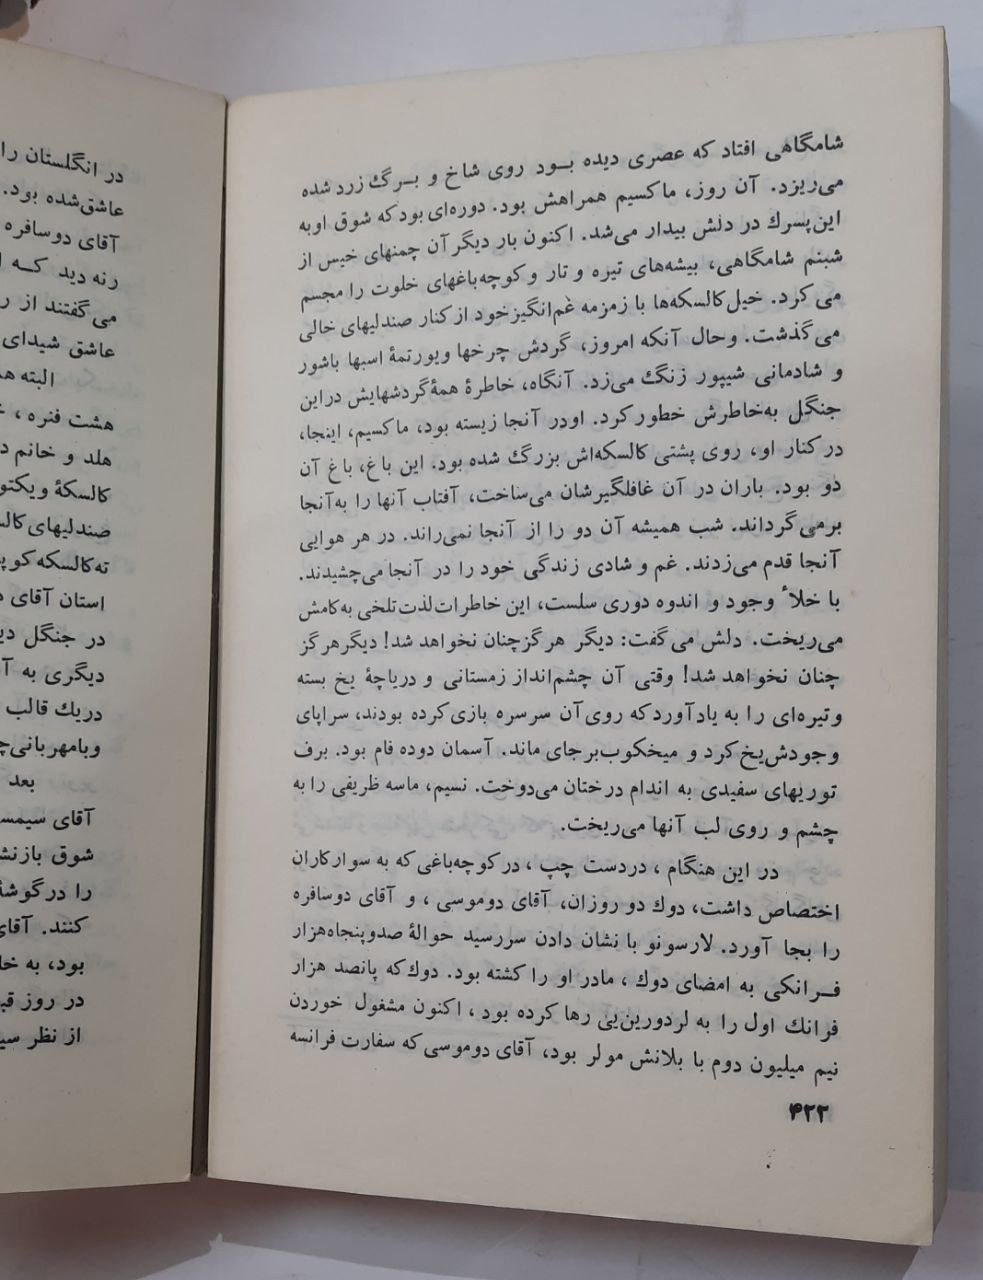 شامگاهی افتاد که عصری دیده بـود روی شاخ و بـرگ زرد شده
می‌ریزد. آن روز، ماکسیم همراهش بود. دوره‌ای بود که شوق او به
این پسرك در دلش بیدار می‌شد. اکنون بار دیگر آن چمنهای خیس از
شبنم شامگاهی، بیشه‌های تیره و تار و کوچه‌باغهای خلوت را مجسم
می کرد. خیل کالسکه‌ها با زمزمه غم‌انگیز خود از کنار صندلیهای خالی
می گذشت. وحال آنکه امروز، گردش چرخها ویورتمهٔ اسبها باشور
و شادمانی شیپور زنگ می‌زد. آنگاه، خاطرهٔ همهٔ گردشهایش در این
جنگل به‌خاطرش خطور کرد. او در آنجا زیسته بود، ماکسیم، اینجا،
در کنار او، روی پشتی کالسکه‌اش بزرگ شده بود. این باغ، باغ آن
دو بود. باران در آن غافلگیرشان می‌ساخت، آفتاب آنها را به‌آنجا
برمی گرداند. شب همیشه آن دو را از آنجا نمی‌راند. در هر هوایی
آنجا قدم می‌زدند. غم و شادی زندگی خود را در آنجا می‌چشیدند.
با خلأ وجود و اندوه دوری سلست، این خاطرات لذت تلخی به‌کامش
می‌ریخت. دلش می گفت: دیگر هرگز چنان نخواهد شد! دیگر هرگز
چنان نخواهد شد! وقتی آن چشم‌انداز زمستانی و دریاچهٔ یخ بسته
وتیره‌ای را به یاد آورد که روی آن سرسره بازی کرده بودند، سراپای
وجودش یخ کرد و میخکوب برجای ماند. آسمان دوده فام بود. برف
توریهای سفیدی به اندام درختان می‌دوخت. نسیم، ماسه ظریفی را به
چشم و روی لب آنها می‌ریخت.
در این هنگام ، در دست چپ ، در کوچه‌باغی که به سوارکاران
اختصاص داشت، دوك دو روزان، آقای دوموسی ، و آقای دوسافره
را بجا آورد. لارسونو با نشان دادن سررسید حوالهٔ صدوپنجاه‌هزار
فـرانکی به امضای دوك ، مادر او را کشته بود. دوك که پانصد هزار
فرانك اول را به لردورین‌یی رها کرده بود ، اکنون مشغول خوردن
نیم میلیون دوم با بلانش مولر بود، آقای دوموسی که سفارت فرانسه
۴۲۲
در انگلستان را
عاشق‌شده بود.
آقای دوسافره
رنه دید کــه
می گفتند از
عاشق شیدای
البته
هشت فنره ،
هلد و خانم
کالسکهٔ ویکتو
صندلیهای
ته‌کالسکه
استان آقای
در جنگل
دیگری به
دریك قالب
وبامهربانی
بعد
آقای سیمسـ
شوق
را در گوشهٔ
کنند.
بود، به
در روز
از نظر